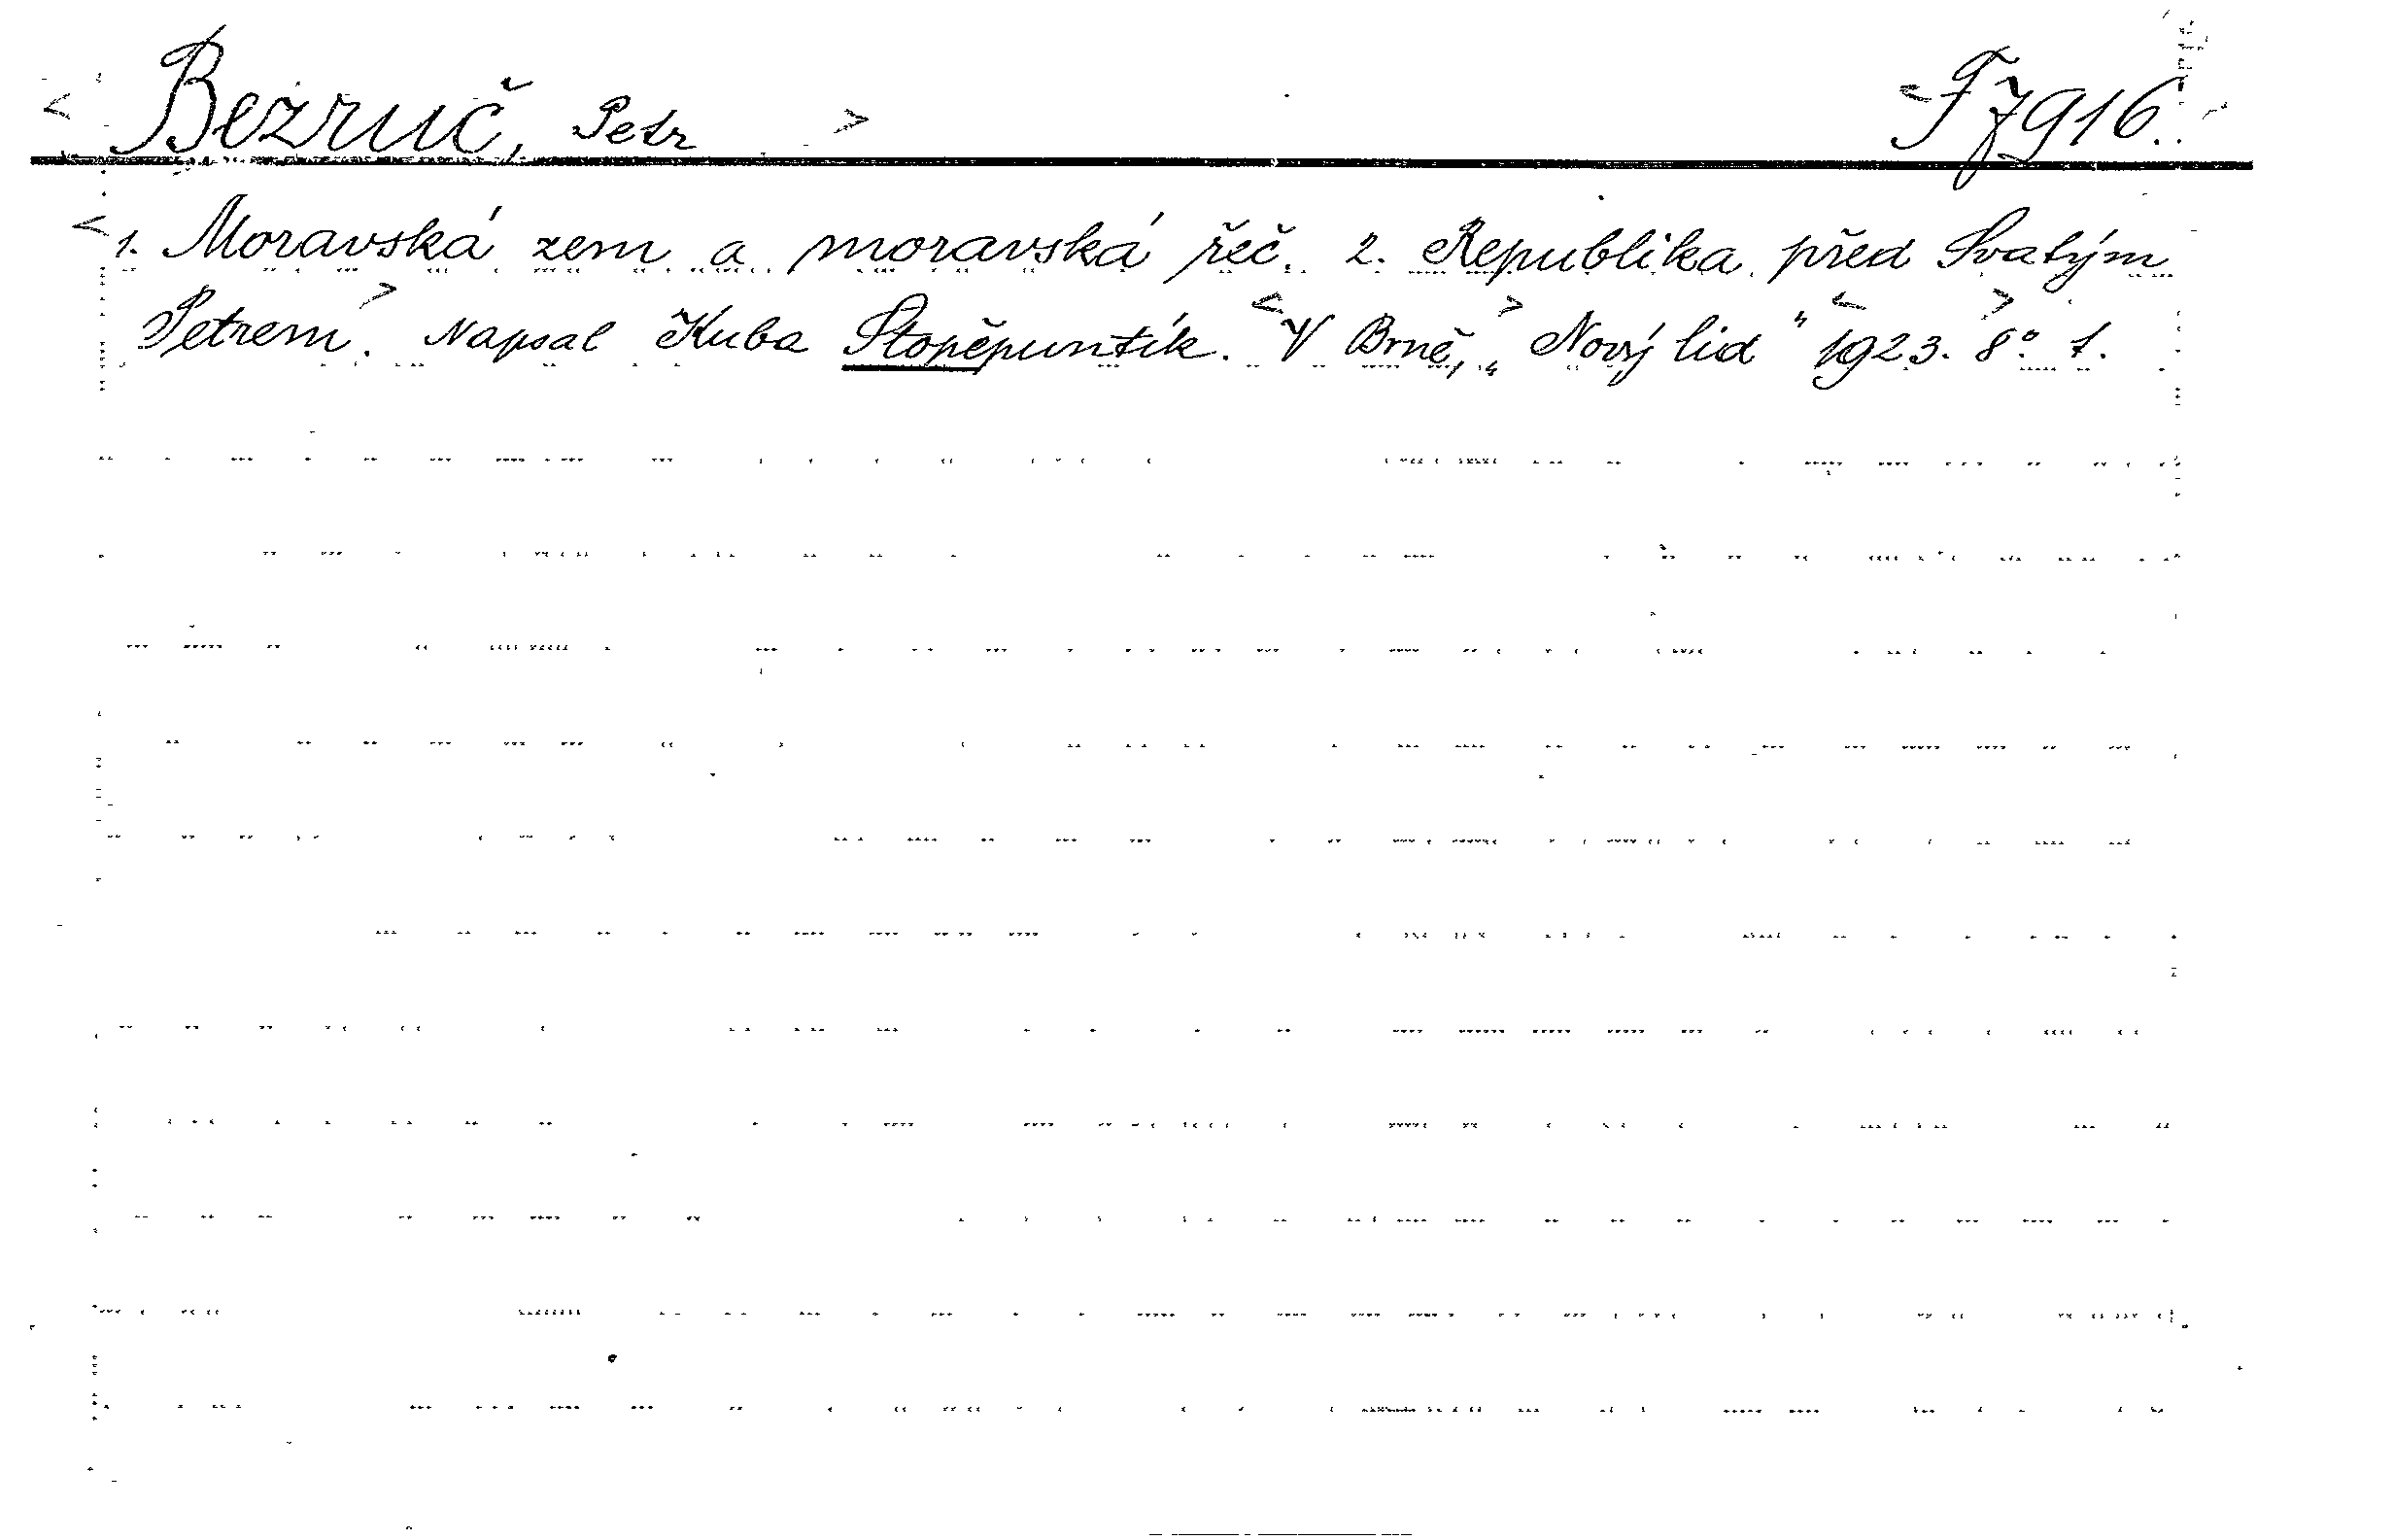 < Bezruč, Petr > F 7916.
< 1. Moravská zem a moravská řeč. 2. Republika před Svatým
Petrem. > Napsal Kuba Stopěpuntík. < V Brně, > „Nový lid" < 1923. > 8° 1.